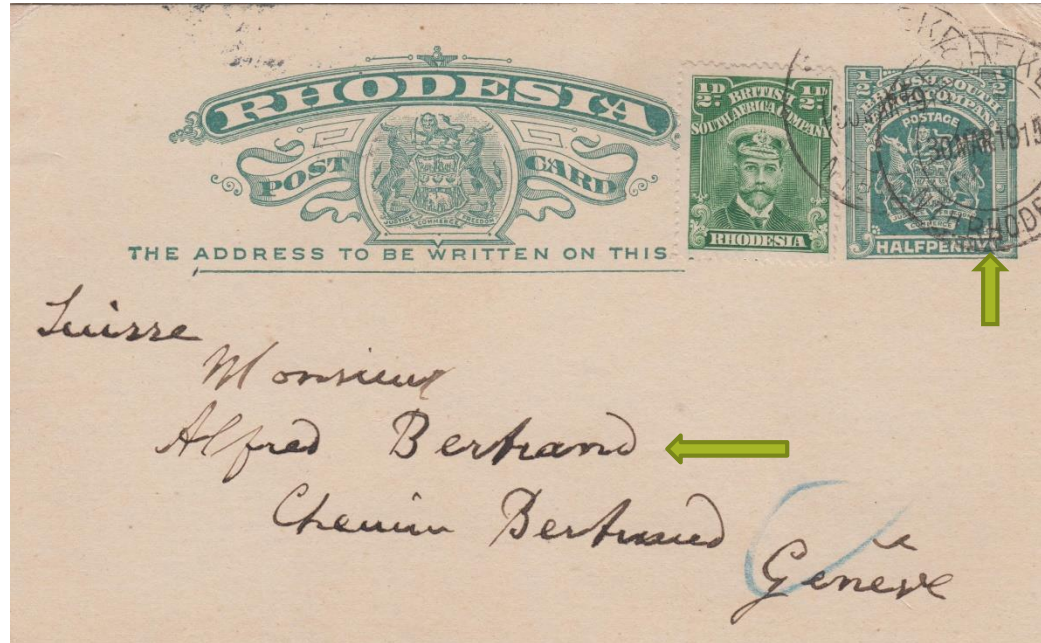 RHODESIA
POST CARD
JUSTICE COMMERCE FREEDOM
THE ADDRESS TO BE WRITTEN ON THIS
½D ½D
BRITISH
SOUTH AFRICA COMPANY
RHODESIA
½ ½
POSTAGE
HALFPENNY
30 MAR 1915
RHODE
Suisse
Monsieur
Alfred Bertrand
Chemin Bertrand
à
Genève